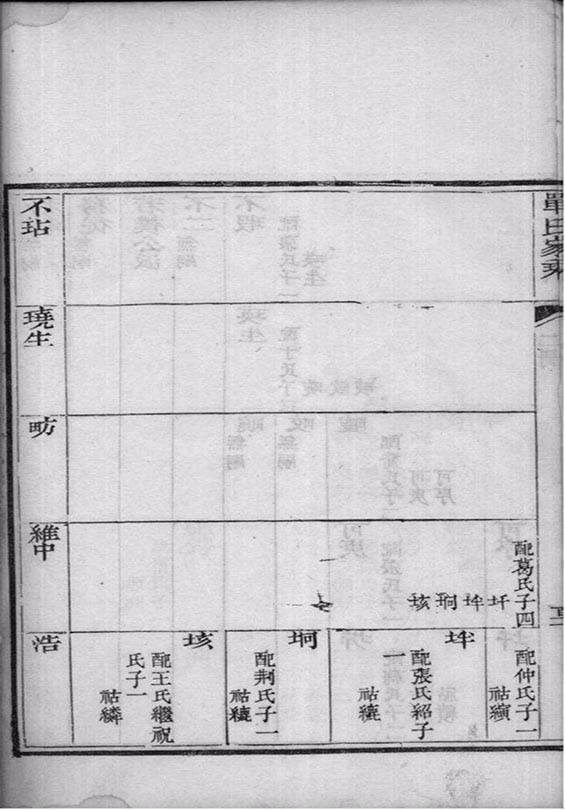 單氏家乘
配葛氏子四
圩 坢 坰 垓
配仲氏子一
祜
坢
配張氏紹子一
祜
坰
配荆氏子一
祜
垓
配王氏繼祝氏子一
祜繗
不玷
生
維中
浩